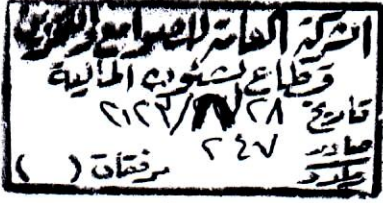 الشركة العامة للصوامع والتخزين
قطاع لشئون المالية
تاريخ ٢٨/ /٢٠٢٣
صادر ٢٤٧
مرفقات ( )